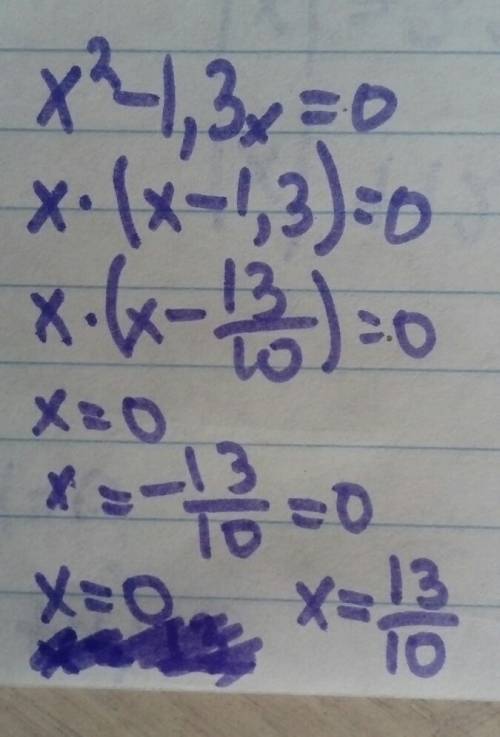 x² - 1,3x = 0
x · (x - 1,3) = 0
x · (x - 13/10) = 0
x = 0
x = - 13/10 = 0
x = 0 x = 13/10